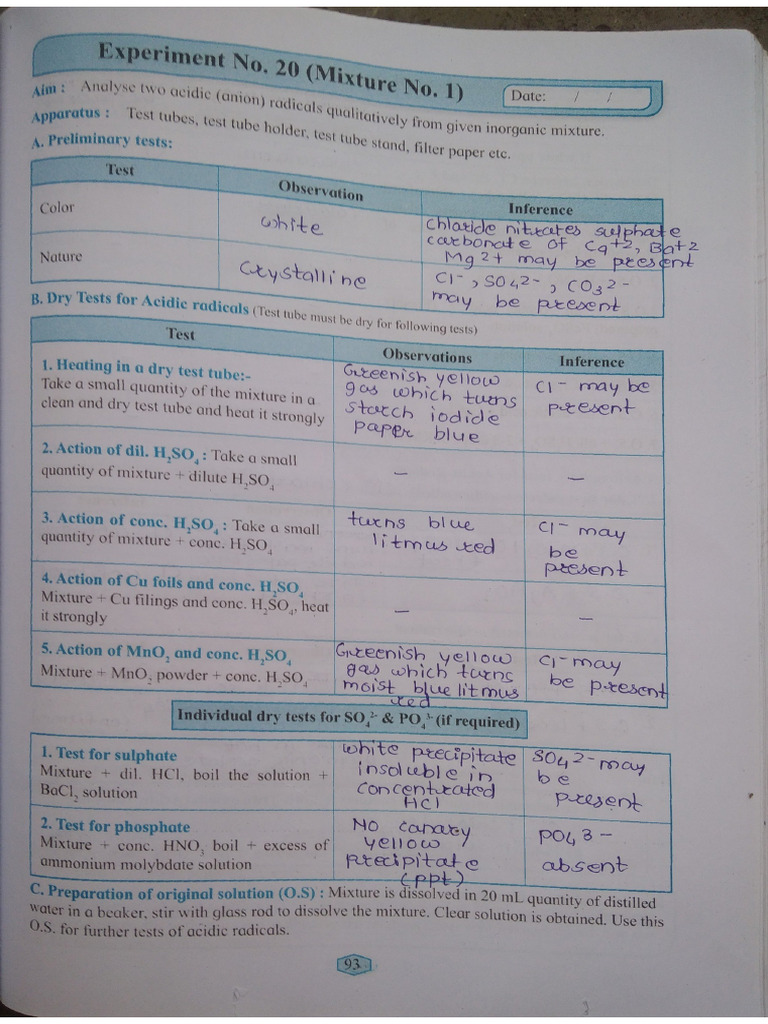 Experiment No. 20 (Mixture No. 1)
Date: / /
Aim : Analyse two acidic (anion) radicals qualitatively from given inorganic mixture.
Apparatus : Test tubes, test tube holder, test tube stand, filter paper etc.
A. Preliminary tests:
Test Observation Inference
Color White Chloride nitrates sulphate
carbonate of Ca+2, Ba+2
Mg2+ may be present
Nature Crystalline Cl-, SO42-, CO32-
may be present
B. Dry Tests for Acidic radicals (Test tube must be dry for following tests)
Test Observations Inference
1. Heating in a dry test tube:-
Take a small quantity of the mixture in a
clean and dry test tube and heat it strongly
Greenish yellow
gas which turns
starch iodide
paper blue
Cl- may be
present
2. Action of dil. H₂SO₄ : Take a small
quantity of mixture + dilute H₂SO₄
–
–
3. Action of conc. H₂SO₄ : Take a small
quantity of mixture + conc. H₂SO₄
turns blue
litmus red
Cl- may
be
present
4. Action of Cu foils and conc. H₂SO₄
Mixture + Cu filings and conc. H₂SO₄, heat
it strongly
–
–
5. Action of MnO₂ and conc. H₂SO₄
Mixture + MnO₂ powder + conc. H₂SO₄
Greenish yellow
gas which turns
moist blue litmus
red
Cl- may
be present
Individual dry tests for SO₄²⁻ & PO₄³⁻ (if required)
1. Test for sulphate
Mixture + dil. HCl, boil the solution +
BaCl₂ solution
White precipitate
insoluble in
concentrated
HCl
SO42- may
be
present
2. Test for phosphate
Mixture + conc. HNO₃ boil + excess of
ammonium molybdate solution
No canary
yellow
precipitate
(ppt)
PO43-
absent
C. Preparation of original solution (O.S) : Mixture is dissolved in 20 mL quantity of distilled
water in a beaker, stir with glass rod to dissolve the mixture. Clear solution is obtained. Use this
O.S. for further tests of acidic radicals.
93